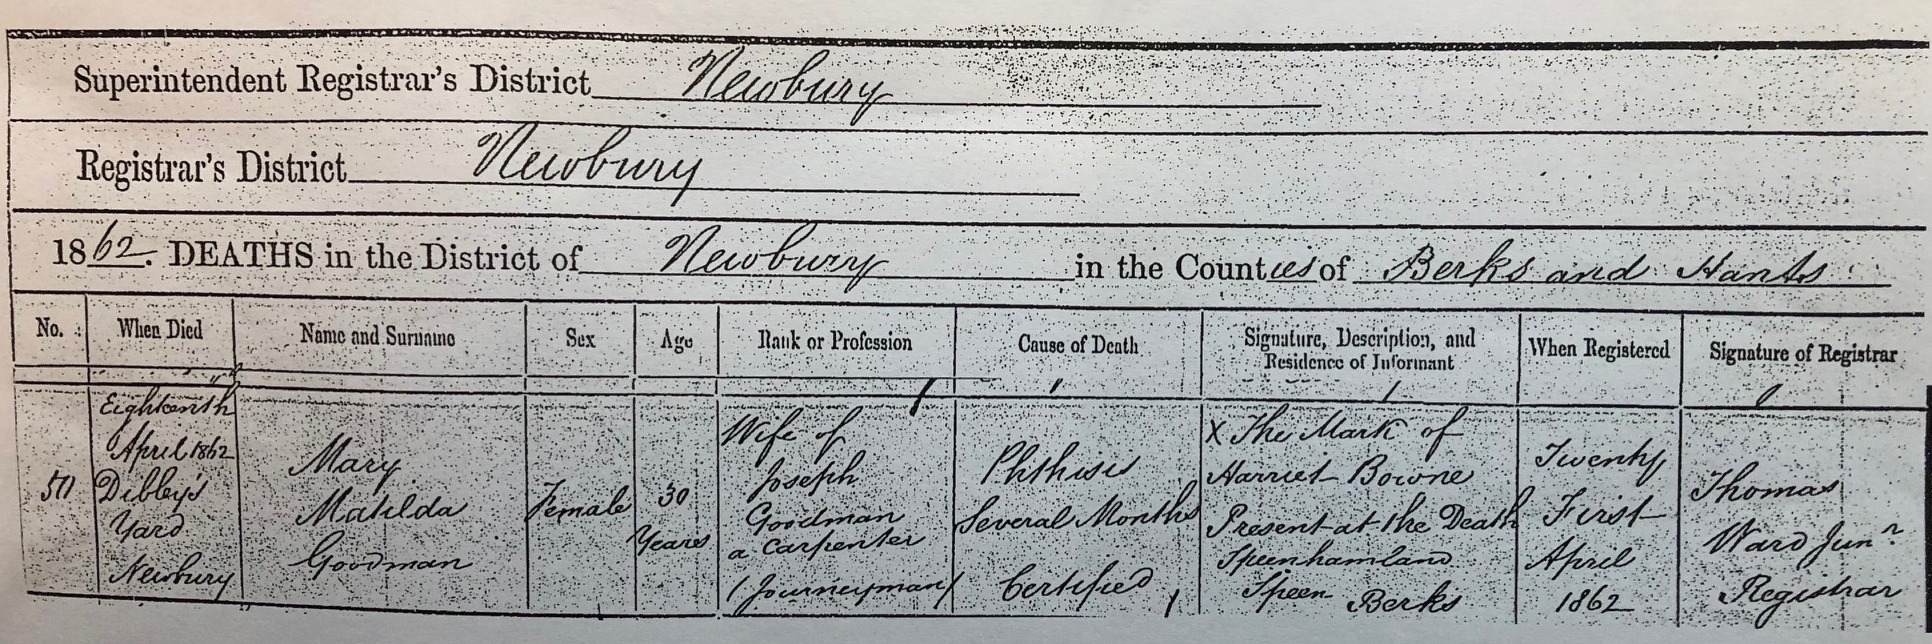 Superintendent Registrar's District Newbury
Registrar's District Newbury
1862. DEATHS in the District of Newbury in the Counties of Berks and Hants
No.
When Died
Name and Surname
Sex
Age
Rank or Profession
Cause of Death
Signature, Description, and
Residence of Informant
When Registered
Signature of Registrar
Eighteenth
April 1862
Dibley's
Yard
Newbury
Mary
Matilda
Goodman
Female
30
Years
Wife of
Joseph
Goodman
a Carpenter
(Journeyman)
Phthisis
Several Months
Certified
X The Mark of
Harriet Bowne
Present at the Death
Speenhamland
Speen Berks
Twenty
First
April
1862
Thomas
Ward Junr
Registrar